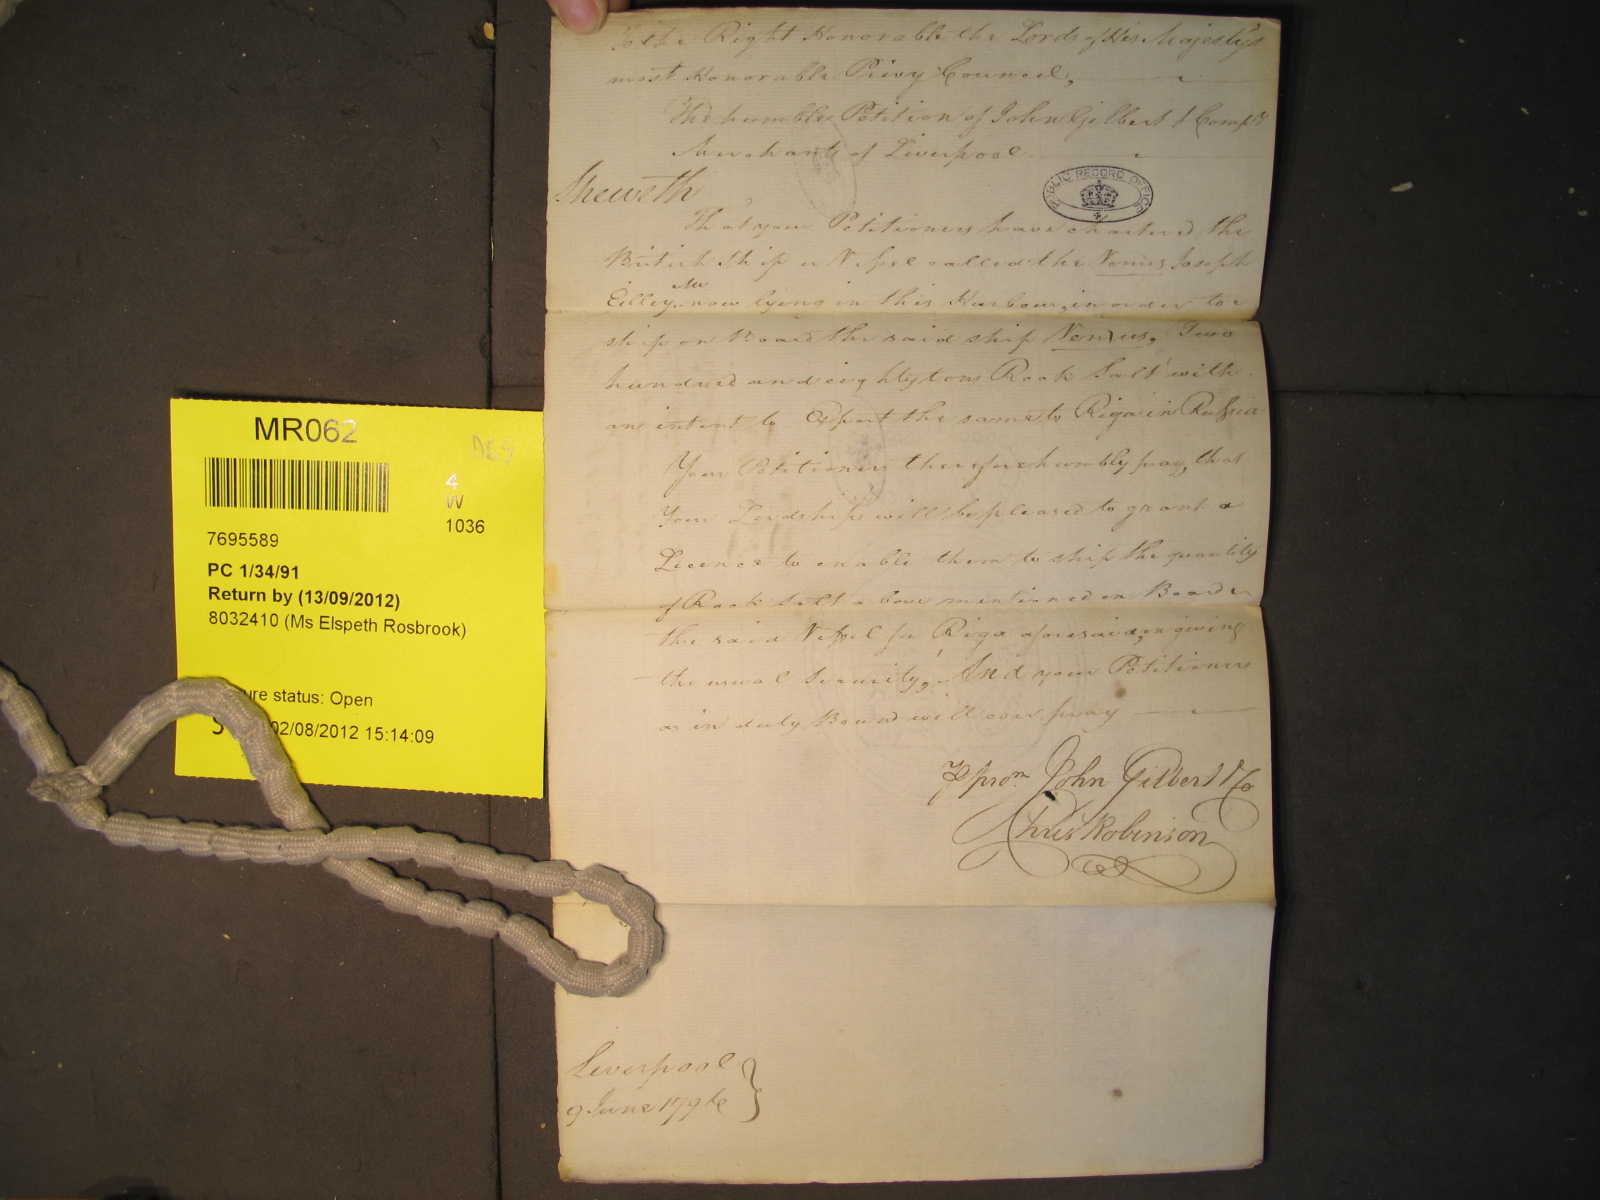 To the Right Honorable the Lords of His Majesty's
most Honorable Privy Council,
The humble Petition of John Gilbert & Compy
Merchants of Liverpool
Sheweth
That your Petitioners have chartered the
British Ship or Vessel called the Venus Joseph
Eilley Mr now lying in this Harbour, in order to
ship on Board the said ship Venus, Two
hundred and eighty tons Rock Salt with
an intent to Export the same to Riga in Russia
Your Petitioners therefore humbly pray, that
Your Lordships will be pleased to grant a
Licence to enable them to ship the quantity
of Rock Salt above mentioned on Board
the said Vessel for Riga aforesaid, on giving
the usual Security, And your Petitioners
as in duty Bound will ever pray
P prom John Gilbert & Co
Chris Robinson
Liverpool
9 June 1796
PUBLIC RECORD OFFICE
MR062
4
W
1036
7695589
PC 1/34/91
Return by (13/09/2012)
8032410 (Ms Elspeth Rosbrook)
ure status: Open
02/08/2012 15:14:09